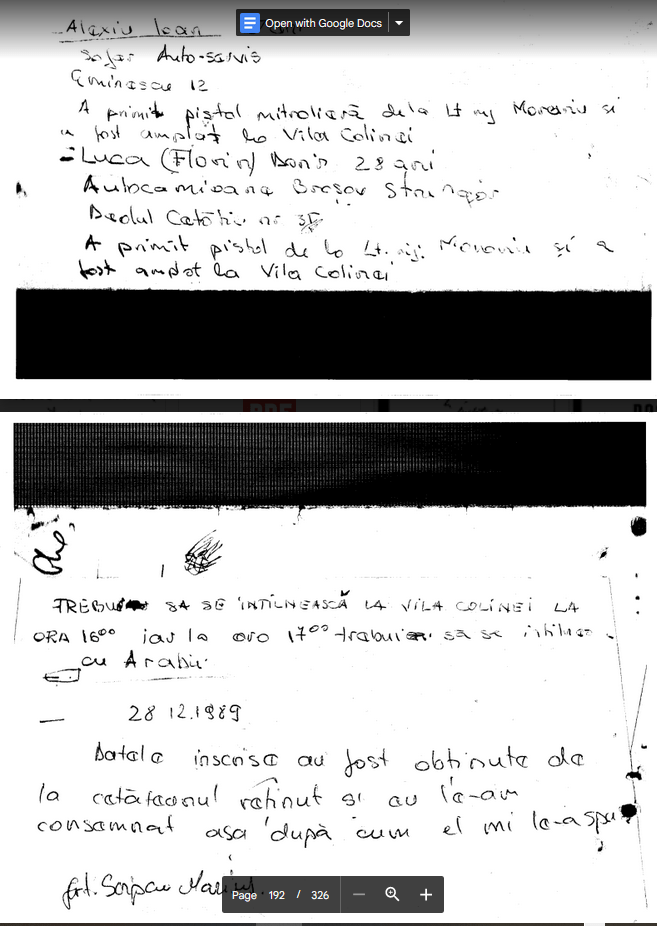 Alexiu Ioan
Open with Google Docs
Sofer Auto-servis
Eminescu 12
A primit pistol mitralieră de la Lt maj Moraviu si
a fost amplat la Vila Colinei
- Luca (Florin) Doris 28 ani
Autocamioane Brașov Strungar
Dealul Cetății nr
A primit pistol de la Lt. maj. și a
fost amplat la Vila Colinei
TREBUIA SA SE INTILNEASCĂ LA VILA COLINEI LA
ORA 16⁰⁰ iar la ora 17⁰⁰ trebuia sa se
cu Arabii.
— 28 12.1989
Datele inscrise au fost obtinute de
la cetățeanul reținut si eu le-am
consemnat asa după cum el mi le-a spus
Marius
Page 192 / 326